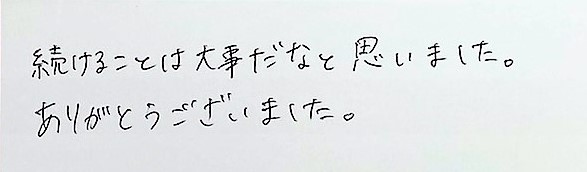 続けることは大事だなと思いました。
ありがとうございました。